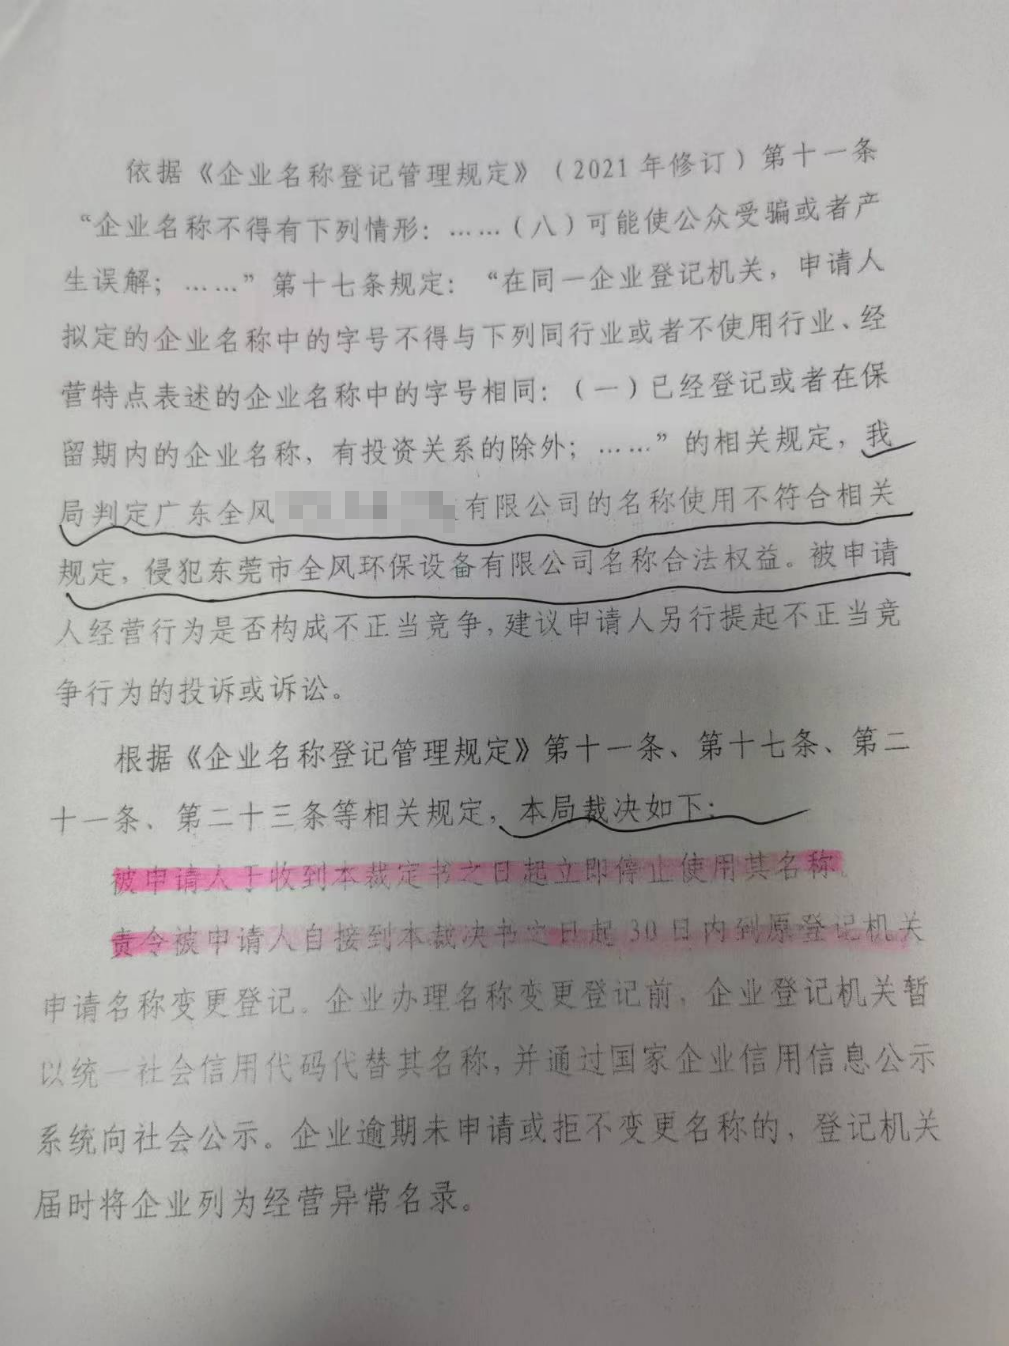 依据《企业名称登记管理规定》（2021年修订）第十一条
“企业名称不得有下列情形：……（八）可能使公众受骗或者产
生误解；……”第十七条规定：“在同一企业登记机关，申请人
拟定的企业名称中的字号不得与下列同行业或者不使用行业、经
营特点表述的企业名称中的字号相同：（一）已经登记或者在保
留期内的企业名称，有投资关系的除外；……”的相关规定，我
局判定广东全风 有限公司的名称使用不符合相关
规定，侵犯东莞市全风环保设备有限公司名称合法权益。被申请
人经营行为是否构成不正当竞争，建议申请人另行提起不正当竞
争行为的投诉或诉讼。
根据《企业名称登记管理规定》第十一条、第十七条、第二
十一条、第二十三条等相关规定，本局裁决如下：
被申请人于收到本裁定书之日起立即停止使用其名称。
责令被申请人自接到本裁决书之日起30日内到原登记机关
申请名称变更登记。企业办理名称变更登记前，企业登记机关暂
以统一社会信用代码代替其名称，并通过国家企业信用信息公示
系统向社会公示。企业逾期未申请或拒不变更名称的，登记机关
届时将企业列为经营异常名录。